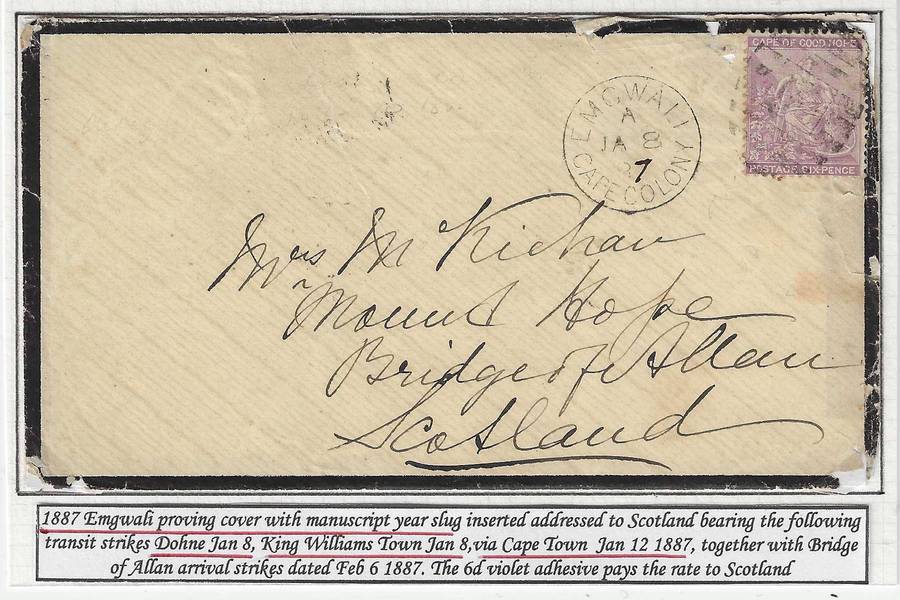 CAPE OF GOOD HOPE
POSTAGE SIX-PENCE
EMGWALI
A
JA 8
87
CAPE COLONY
Mrs McKichan
Mount Hope
Bridge of Allan
Scotland
1887 Emgwali proving cover with manuscript year slug inserted addressed to Scotland bearing the following
transit strikes Dohne Jan 8, King Williams Town Jan 8,via Cape Town Jan 12 1887, together with Bridge
of Allan arrival strikes dated Feb 6 1887. The 6d violet adhesive pays the rate to Scotland